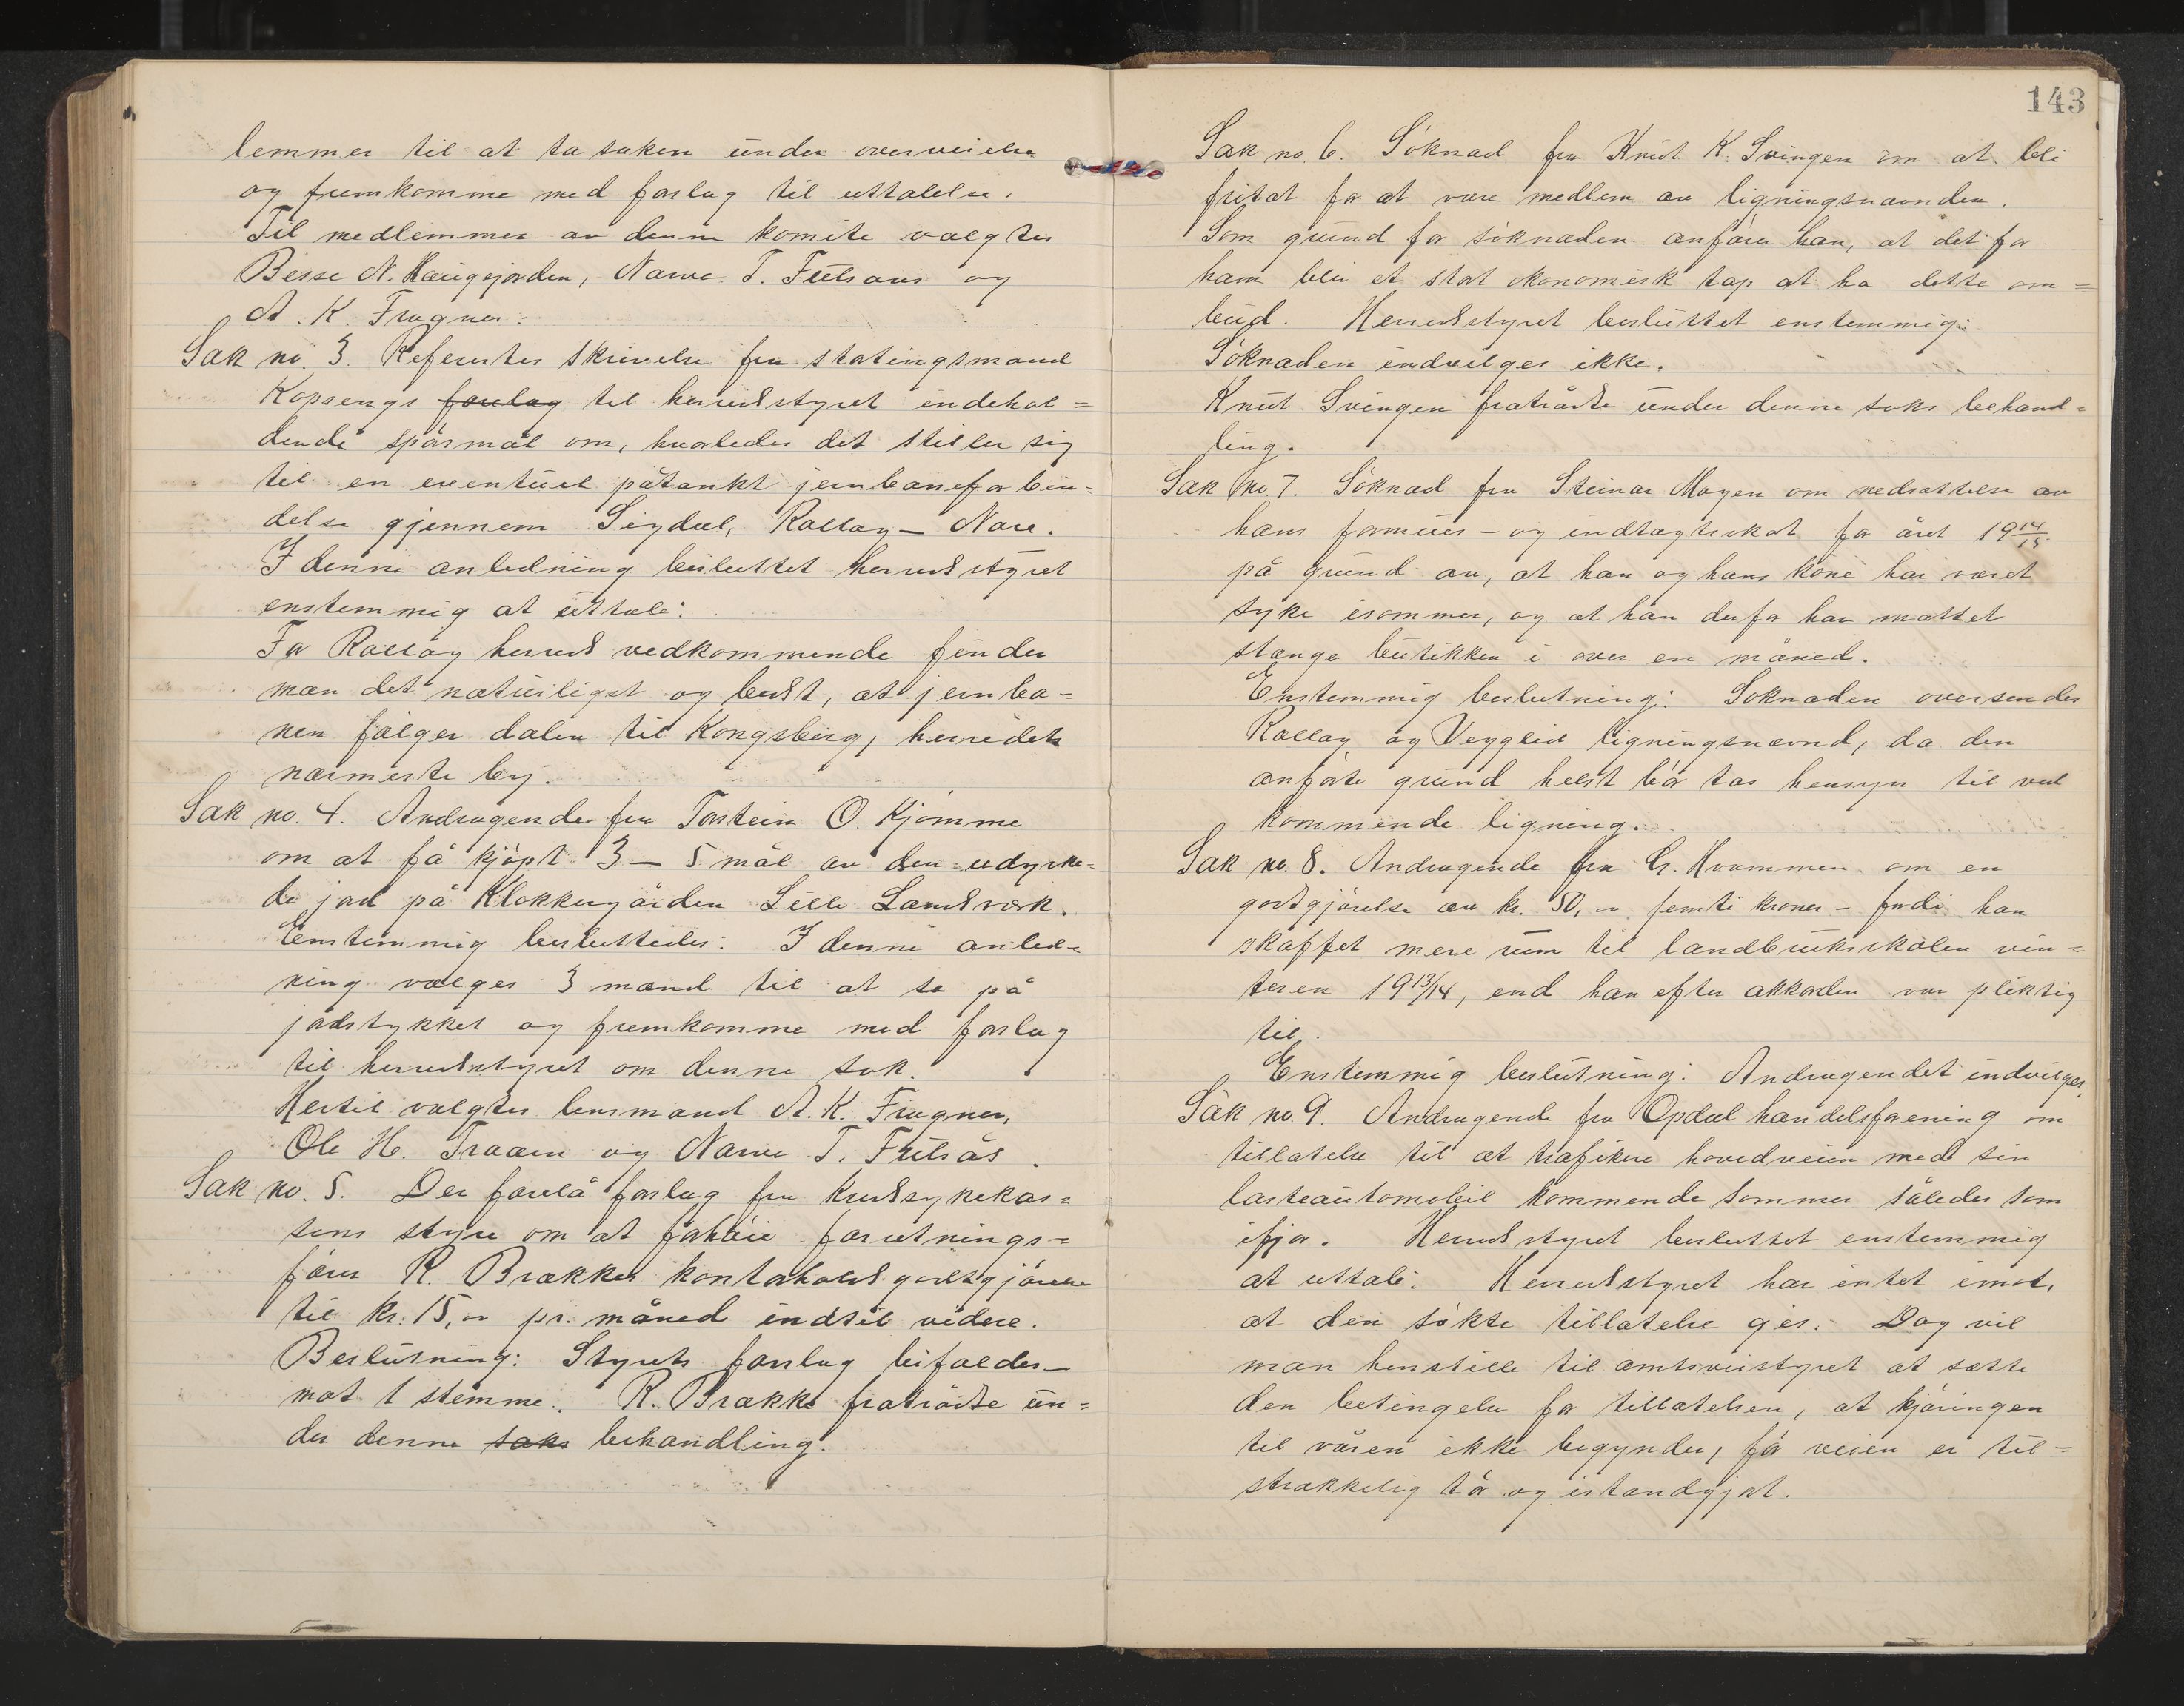 lemmer til at ta saken under overveielse
og fremkomme med forslag til uttalelse.
Til medlemmer av denne komite valgtes
Besse N. Haugejorden, Narve T. Fulsaas og
A. K. Fragner.
Sak no. 3. Referertes skrivelse fra stortingsmand
Kopsengs forslag til herredstyret indehol=
dende spørsmål om, hvorledes det stiller sig
til en eventuel påtænkt jernbaneforbin=
delse gjennem Sigdal, Rollag – Nore.
I denne anledning besluttet herredstyret
enstemmig at uttale:
For Rollag herreds vedkommende finder
man det naturligst og bedst, at jernba=
nen følger dalen til Kongsberg, herredets
nærmeste by.
Sak no. 4. Andragende fra Torstein O. Kjømme
om at få kjøpt 3 – 5 mål av den udyrke=
de jord på Klokkergården Lille Landsverk.
Enstemmig besluttedes: I denne anled=
ning vælges 3 mænd til at se på
jordstykket og fremkomme med forslag
til herredstyret om denne sak.
Hertil valgtes lensmand A. K. Fragner,
Ole H. Traaen og Narve T. Fulsås.
Sak no. 5. Der forelå forslag fra Kredssykekas=
sens styre om at forhøie forretnings=
fører R. Brækkes kontorholdsgodtgjørelse
til kr. 15,00 pr. måned indtil videre.
Beslutning: Styrets forslag bifaldes –
mot 1 stemme. R. Brække fratrådte un=
der denne saks behandling.
143
Sak no. 6. Søknad fra Knut K. Svingen om at bli
fritat for at være medlem av ligningsnævnden.
Som grund for søknaden anfører han, at det for
ham blir et stort økonomisk tap at ha dette om=
bud. Herredstyret besluttet enstemmig:
Søknaden indvilges ikke.
Knut Svingen fratrådte under denne saks behand=
ling.
Sak no. 7. Søknad fra Steinar Mogen om nedsættelse av
hans formues- og indtægtsskat for året 1914/15
på grund av, at han og hans kone har været
syke isommer, og at han derfor har måttet
stænge butikken i over en måned.
Enstemmig beslutning: Søknaden oversendes
Rollag og Vegglid ligningsnævnd, da den
anførte grund helst bør tas hensyn til ved
kommende ligning.
Sak no. 8. Andragende fra Cr. Kvammen om en
godtgjørelse av kr. 50,00 femti kroner – fordi han
skaffet mere rum til landbruksskolen vin=
teren 1913/14, end han efter akkorden var pliktig
til.
Enstemmig beslutning: Andragendet indvilges.
Sak no. 9. Andragende fra Opdal handelsforening om
tillatelse til at trafikere hovedveien med sin
lasteautomobil kommende sommer således som
ifjor. Herredstyret besluttet enstemmig
at uttale: Herredstyret har intet imot,
at den søkte tillatelse gis. Dog vil
man henstille til amtsveistyret at sætte
den betingelse for tillatelsen, at kjøringen
til våren ikke begynder, før veien er til=
strækkelig tør og istandgjort.